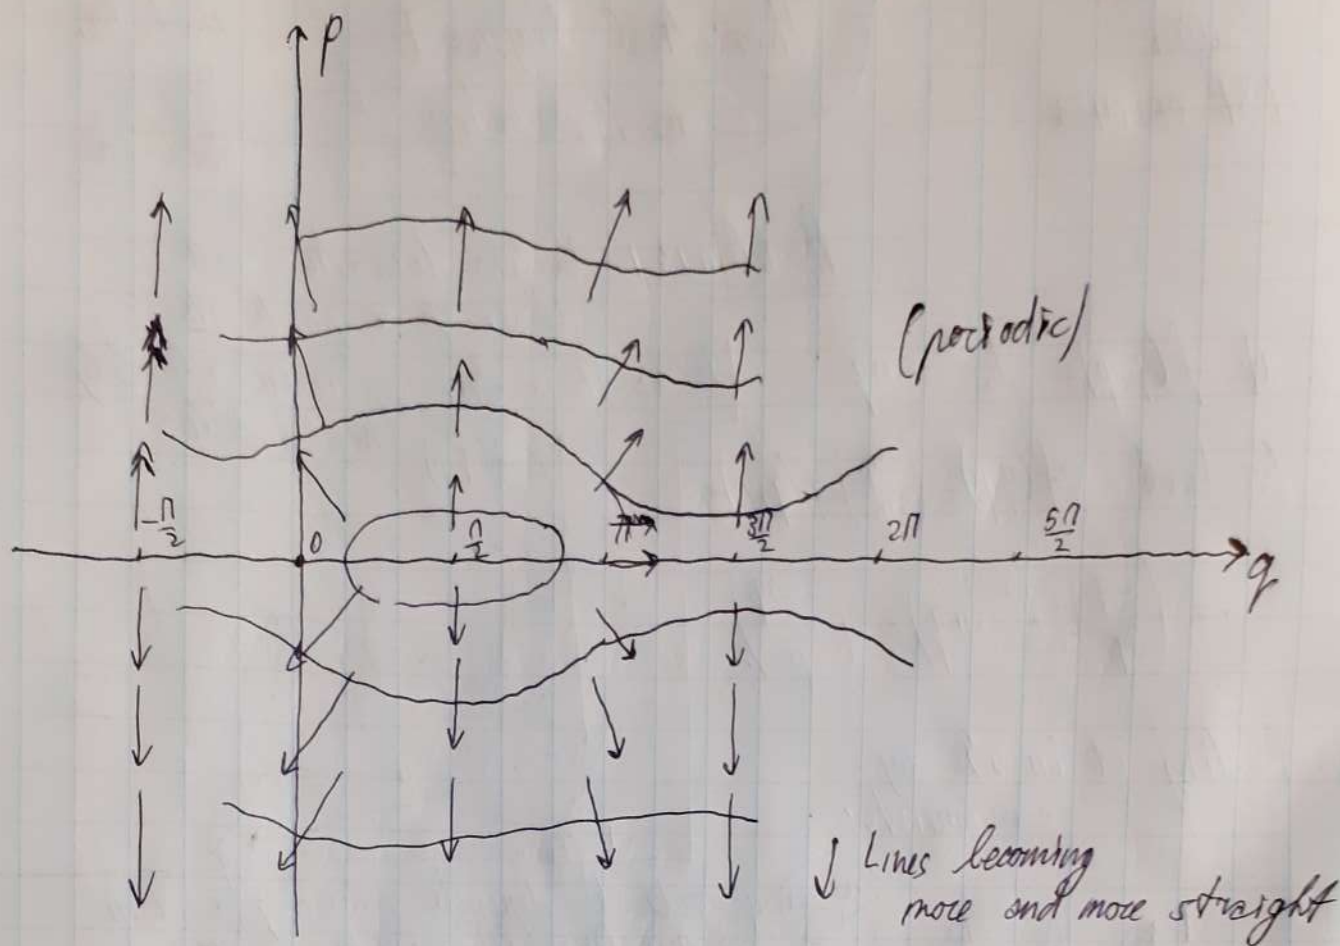 p
(periodic)
-π/2 0 π/2 π 3π/2 2π 5π/2
q
Lines becoming
more and more straight